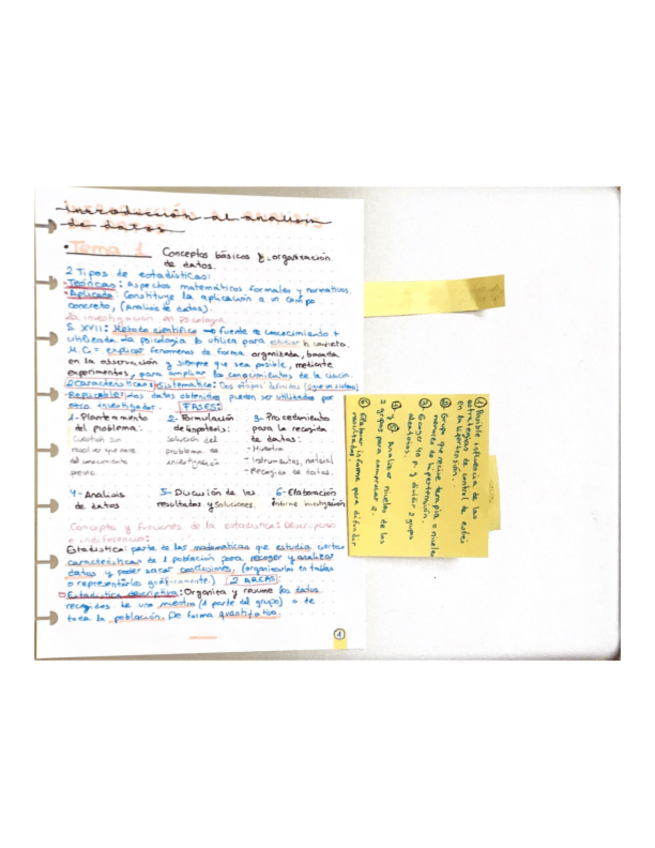 introducción al análisis
de datos
• Tema 1 Conceptos básicos y organización
de datos.
2 Tipos de estadísticas:
- Teóricas: Aspectos matemáticos formales y normativos.
- Aplicada: Constituye la aplicación a un campo
concreto, (Análisis de datos).
La investigación en psicología
S. XVII: Método científico → fuente de conocimiento +
utilizada. La psicología lo utiliza para estudiar la conducta.
M.C = explicar fenómenos de forma organizada, basada
en la observación y siempre que sea posible, mediante
experimentos, para ampliar los conocimientos de la ciencia.
2 características: Sistemático: Dos etapas definidas
- Replicable: los datos obtenidos pueden ser utilizados por
otro investigador. FASES:
1- Planteamiento 2- Formulación 3- Procedimiento
del problema: de hipótesis: para la recogida
Cuestión sin solución del de datos:
resolver que nace problema de - Muestra
del conocimiento investigación - Instrumentos, material
previo - Recogida de datos.
4- Análisis 5- Discusión de los 6- Elaboración
de datos resultados y soluciones. informe investigación
Concepto y funciones de la estadística: Descriptiva
e
Estadística: parte de las matemáticas que estudia ciertas
características de 1 población para recoger y analizar
datos y poder sacar conclusiones, (organizarlos en tablas
o representarlo gráficamente.) 2 AREAS:
Estadística descriptiva: Organiza y resume los datos
recogidos de una muestra (1 parte del grupo) o de
toda la población. De forma cuantitativa.
1
① Posible influencia de las
estrategias de control de estrés
en la hipertensión.
② Grupo que recibe terapia = nivele
menores de hipertensión.
③ Escoger 40 p. y dividir 2 grupos
aleatorios.
④ y ⑤ Analizar niveles de los
2 grupos para comprobar 2.
⑥ Elaborar informe para difundir
resultados.